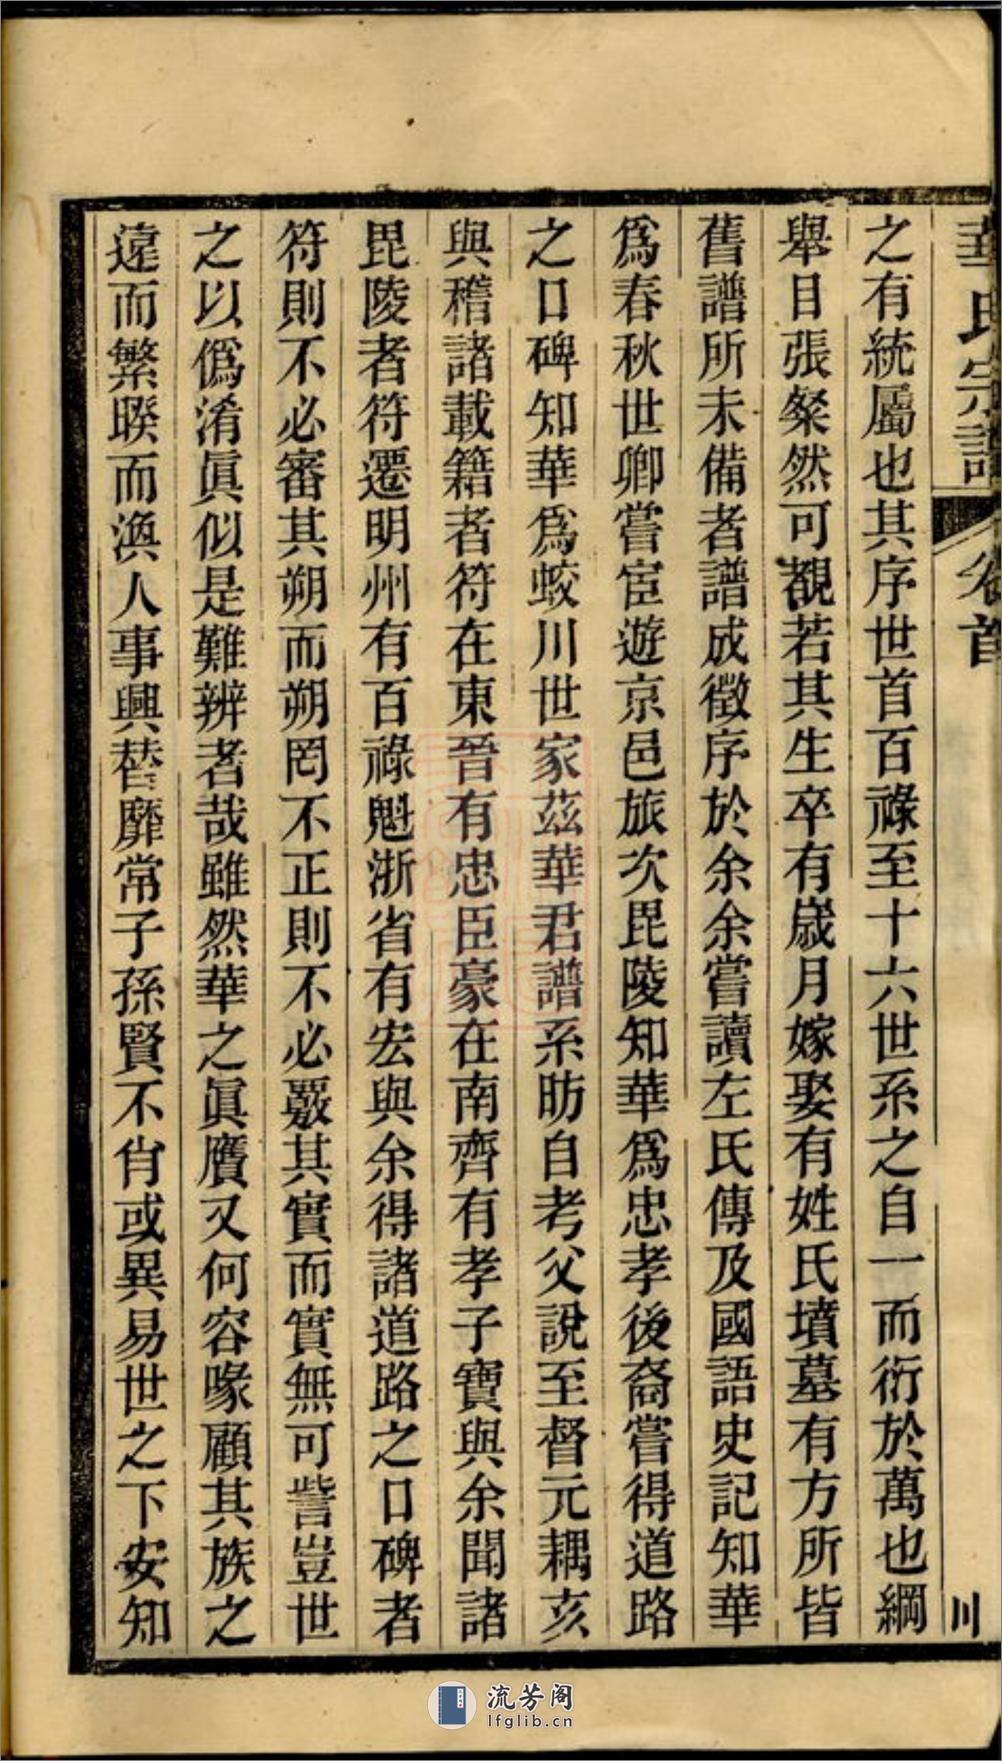 華氏宗譜 卷首 川
之有統屬也其序世首百祿至十六世系之自一而衍於萬也綱
舉目張粲然可覩若其生卒有歲月嫁娶有姓氏墳墓有方所皆
舊譜所未備者譜成徵序於余余嘗讀左氏傳及國語史記知華
爲春秋世卿嘗宦遊京邑旅次毘陵知華爲忠孝後裔嘗得道路
之口碑知華爲蛟川世家茲華君譜系昉自考父說至督元耦亥
與稽諸載籍者符在東晉有忠臣豪在南齊有孝子寶與余聞諸
毘陵者符遷明州有百祿魁浙省有宏與余得諸道路之口碑者
符則不必審其朔而朔罔不正則不必覈其實而實無可訾豈世
之以僞淆眞似是難辨者哉雖然華之眞贋又何容喙顧其族之
遠而繁睽而渙人事興替靡常子孫賢不肖或異易世之下安知
流芳阁
lfglib.cn